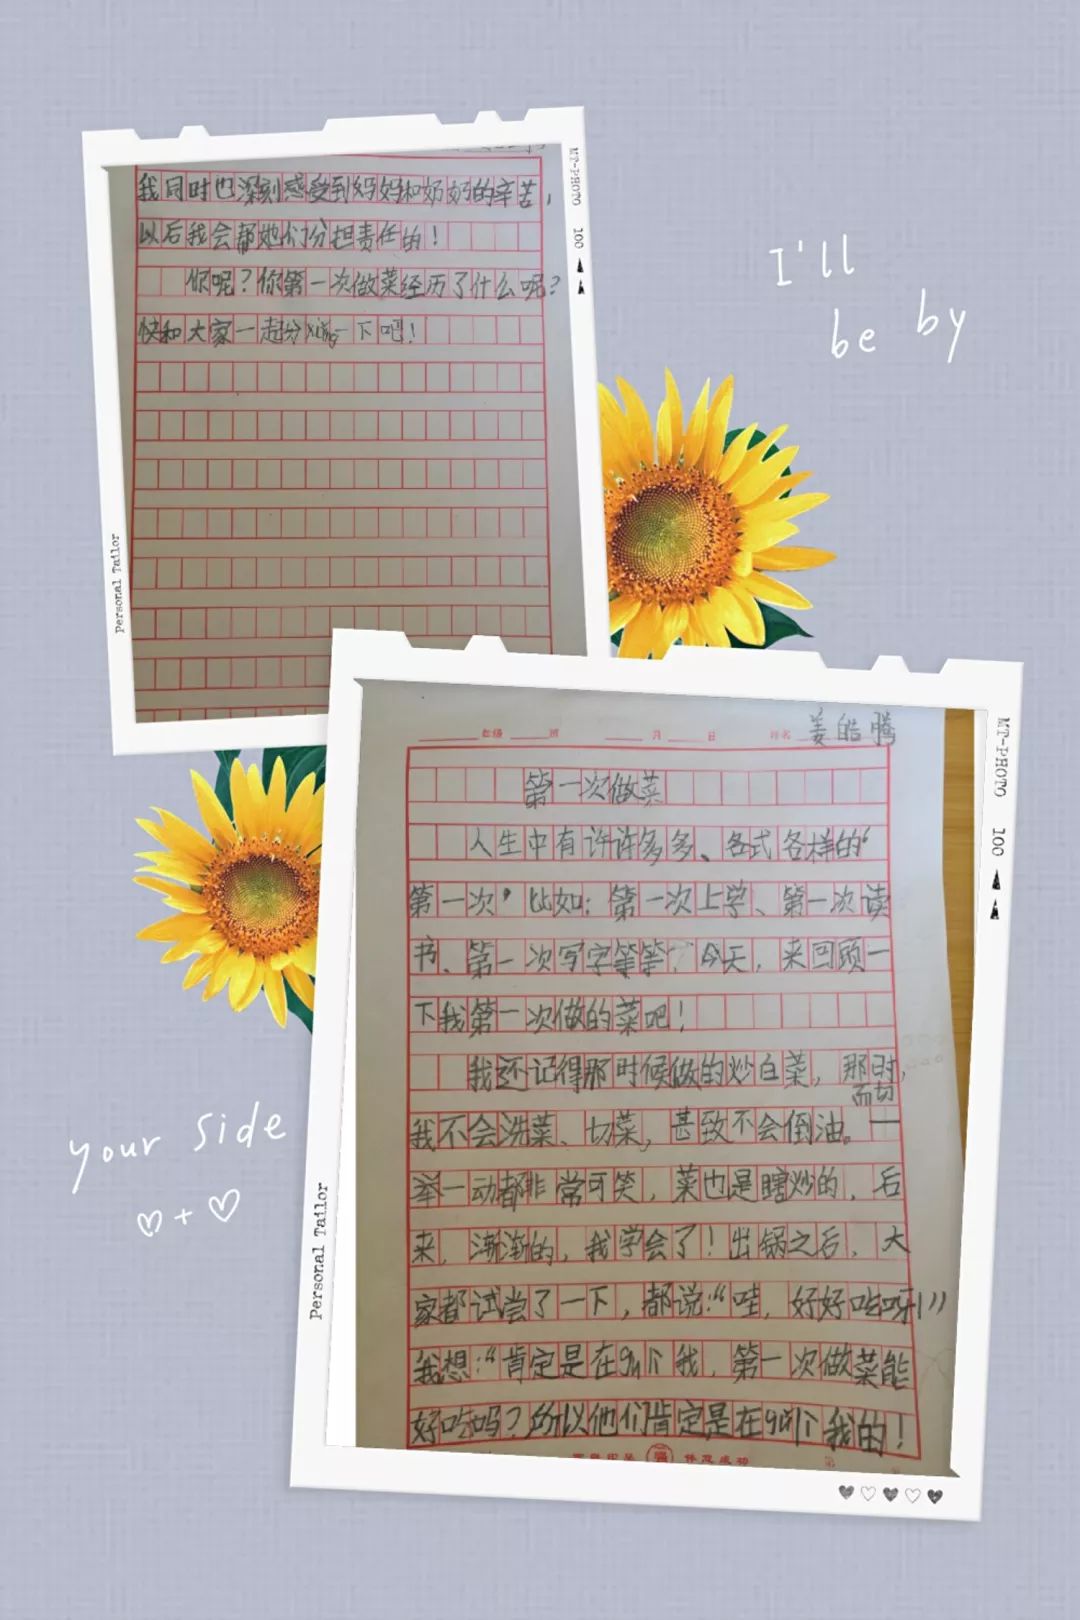 我同时也深刻感受到妈妈和奶奶的辛苦，
以后我会帮她们分担责任的！
你呢？你第一次做菜经历了什么呢？
快和大家一起分xiǎng一下吧！
MT-PHOTO 100
Personal Tailor
I'll
be by
your side
年级 班 月 日 姓名 姜皓腾
第一次做菜
人生中有许许多多、各式各样的“
第一次”比如：第一次上学、第一次读
书、第一次写字等等，今天，来回顾一
下我第一次做的菜吧！
我还记得那时候做的炒白菜，那时，
而切
我不会洗菜、切菜，甚致不会倒油。一
举一动都非常可笑，菜也是瞎炒的，后
来，渐渐的，我学会了！出锅之后，大
家都试尝了一下，都说：“哇，好好吃呀！”
我想：“肯定是在gǔ个我，第一次做菜能
好吃吗？所以他们肯定是在gǔ个我的！
MT-PHOTO 100
Personal Tailor